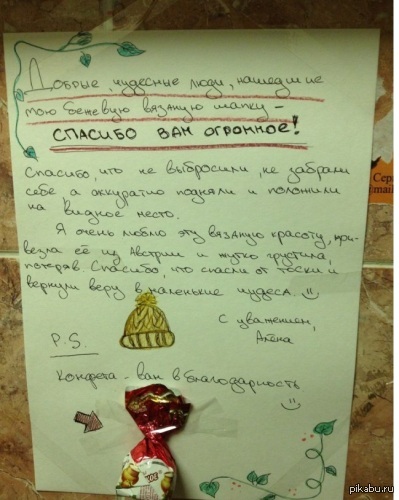 Добрые, чудесные люди, нашедшие
мою бежевую вязаную шапку –
СПАСИБО ВАМ ОГРОМНОЕ!
Спасибо, что не выбросили, не забрали
себе а аккуратно подняли и положили
на видное место.
Я очень люблю эту вязаную красоту, при-
везла её из Австрии и жутко грустила,
потеряв. Спасибо, что спасли от тоски и
вернули веру в маленькие чудеса.
С уважением,
Алёна
P.S.
Конфета – вам в благодарность
pikabu.ru